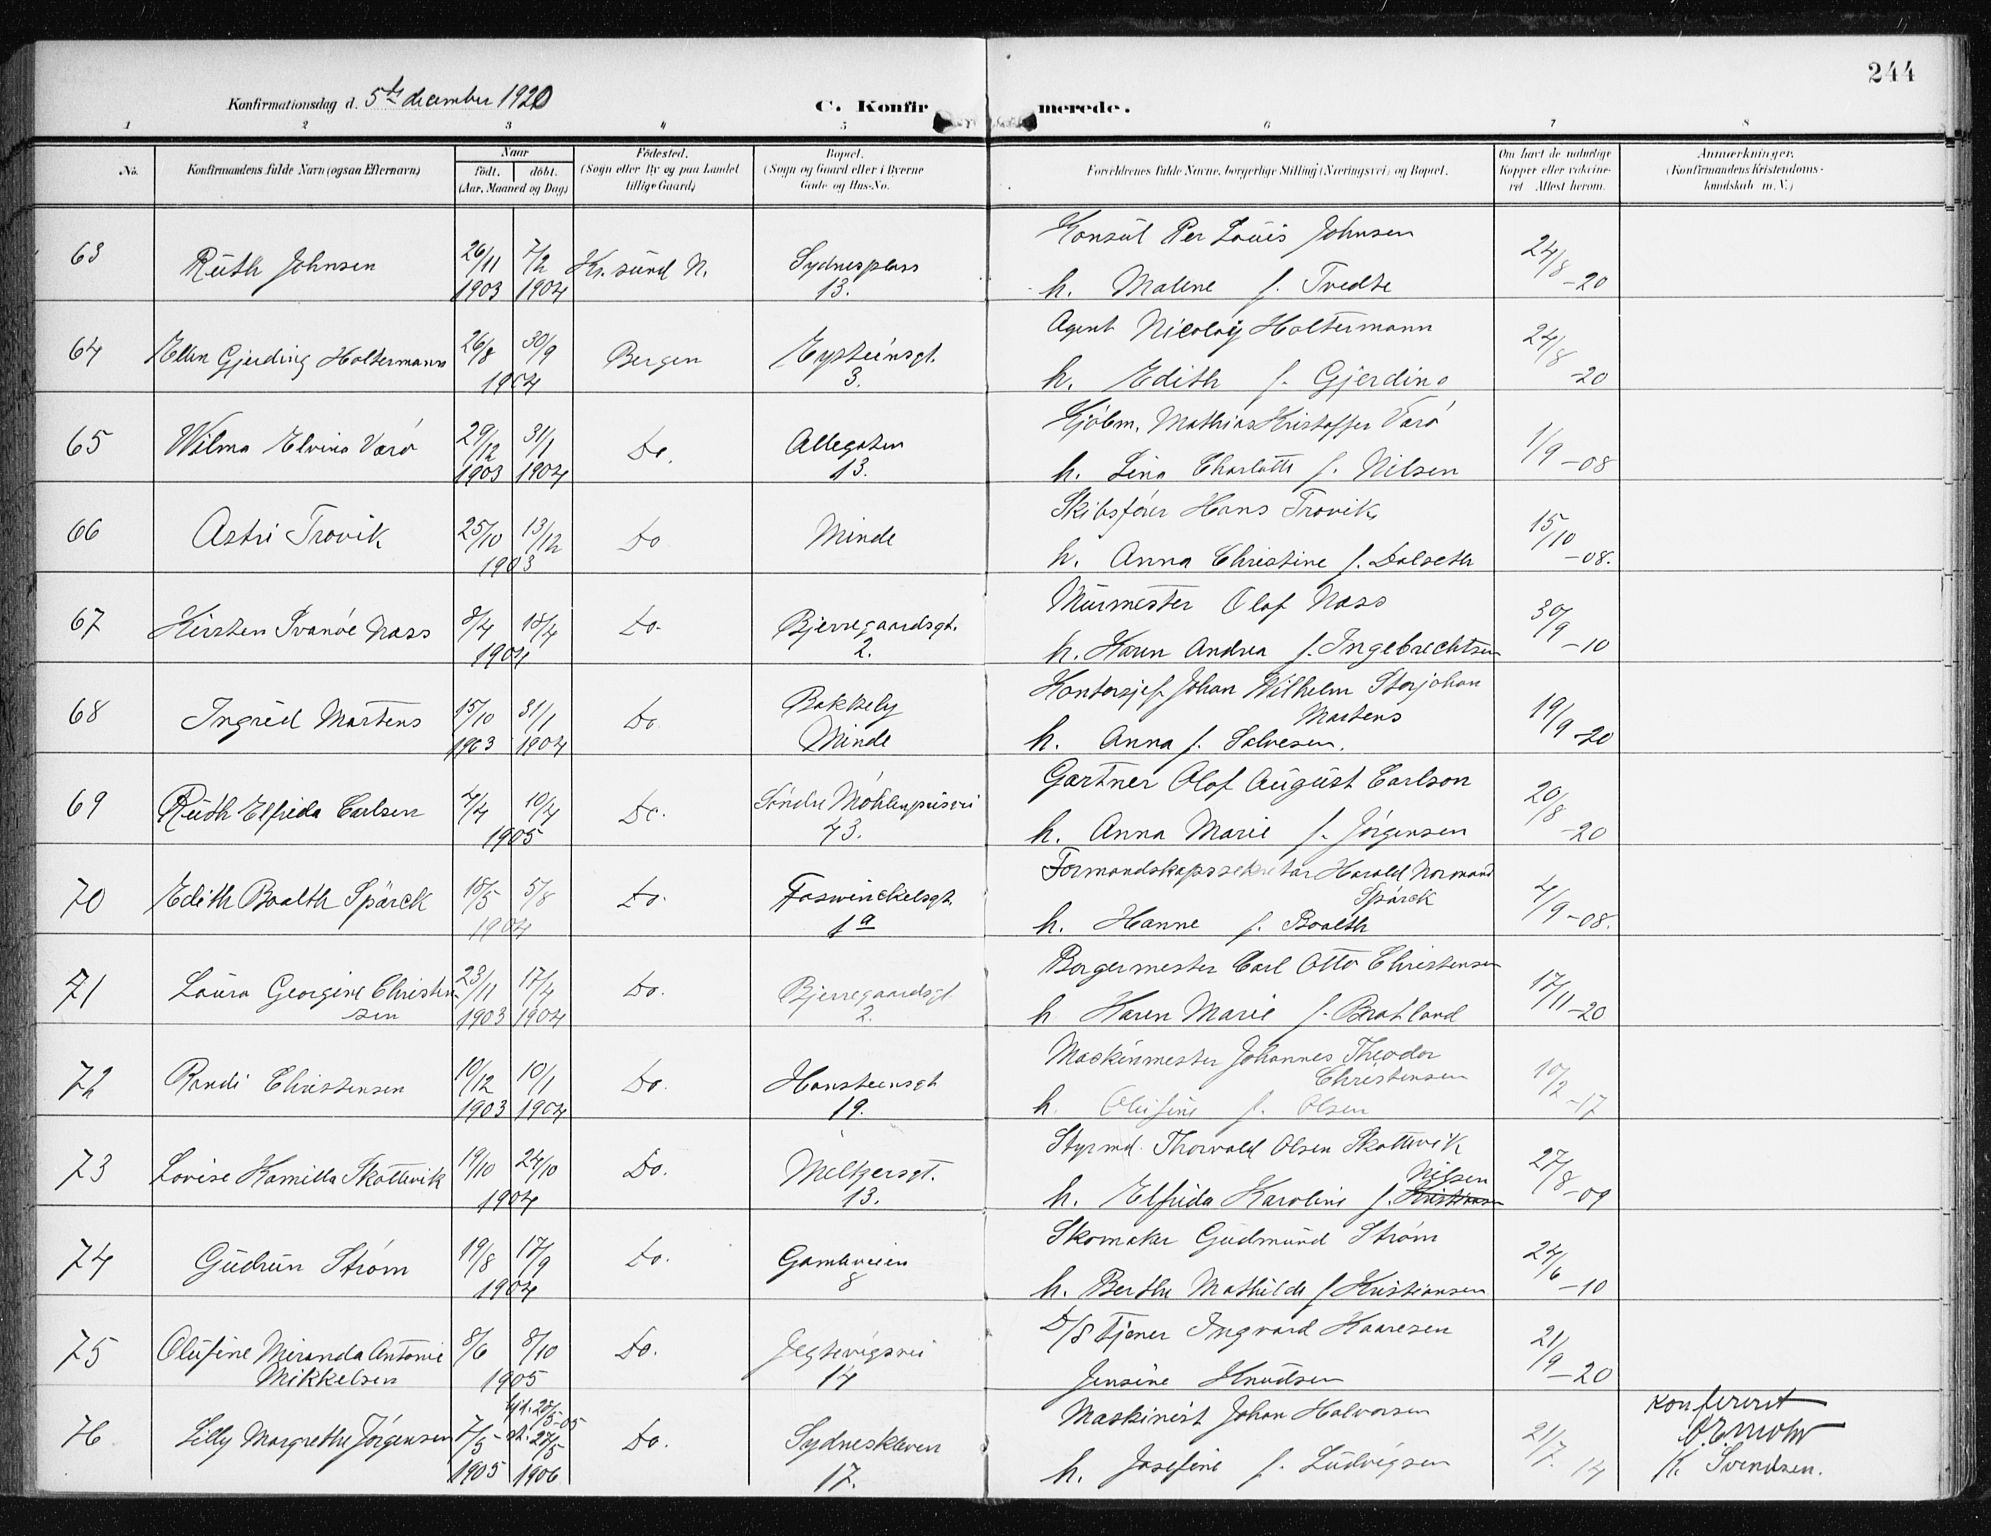 244
Konfirmationsdag d. 5te december 1920
C. Konfirmerede.
1 2 3 4 5 6 7 8
No. Konfirmandens fulde Navn (ogsaa Efternavn) Naar født. døbt. (Aar, Maaned og Dag) Fødested. (Sogn eller By og paa Landet tillige Gaard) Bopæl. (Sogn og Gaard eller i Byerne Gade og Hus-No. Forældrenes fulde Navne, borgerlige Stilling (Næringsvei) og Bopæl. Om havt de naturlige Kopper eller vakcineret. Attest herom. Anmærkninger. (Konfirmandens Kristendomskundskab m. V.)
63 Ruth Johnsen 26/11 1903 7/2 1904 Kr.sund N. Sydnesplass 13. Konsul Per Louis Johnsen 24/8 -20
h. Malene f. Tvedte
64 Ellen Gjerding Holtermann 26/8 30/9 1904 Bergen Eysteinsgt. 3. Agent Nicolay Holtermann 24/8 -20
h. Edith f. Gjerding
65 Wilma Elvina Varø 29/12 1903 31/1 1904 Do. Allegaten 13. Kjøbm. Mathias Kristoffer Varø 1/9 -08
h. Lina Charlotte f. Nilsen
66 Astri Trovik 25/10 13/12 1903 Do Minde Skibsfører Hans Trovik 15/10 -08.
h. Anna Christine f. Dalseth
67 Kirsten Svanøe Nass 8/4 18/4 1904 Do. Bjerregaardsgt. 2. Murmester Olaf Nass 30/9 -10
h. Karen Andrea f. Ingebrechtsen
68 Ingrid Martens 15/10 1903 31/1 1904 Do. Bakkely Minde Kontorsjef Johan Wilhelm Storjohan Martens 19/9 -20
h. Anna f. Salvesen.
69 Ruth Elfrida Carlsen 4/4 10/4 1905 Do. Søndre Møhlenprisvei 43. Gartner Olof August Carlson 20/8 -20
h. Anna Marie f. Jørgensen
70 Edith Boalth Spärck 18/5 5/8 1904 Do. Foswinckelsgt. 1a Formandskapssekretær Harald Normand Spärck 4/9 -08.
h. Hanne f. Boalth
71 Laura Georgine Christensen 23/11 1903 17/4 1904 Do. Bjerregaardsgt. 2. Borgermester Carl Otto Christensen 17/11 -20
h Karen Marie f. Bratland
72 Randi Christensen 10/12 1903 10/1 1904 Do. Hansteensgt 19. Maskinmester Johannes Theodor Christensen 10/2 -17
h. Olufine f. Olsen
73 Lovise Kamilla Skottevik 19/10 24/10 1904 Do. Meltzersgt. 13. Styrmd. Thorvald Olsen Skottevik 27/8 -09
h. Elfrida Karoline f. Kristiansen Nilsen
74 Gudrun Strøm 19/8 17/9 1904 Do. Gamleveien 8 Skomaker Gudmund Strøm 24/6 -10
h. Berthe Mathilde f Kristiansen
75 Olufine Miranda Antonie Mikkelsen 8/6 8/10 1905 Do. Jegtevigsvei 14 D/S tjener Ingvard Kaaresen 21/9 -20
Jensine Knudsen
76 Lilly Margrethe Jørgensen 7/5 1905 hj.d. 28/5-05 st. 27/5 1906 Do. Sydneskleven 17. Maskinist Johan Halvorsen 21/7. 14
h. Josefine f. Ludvigsen
Konferert
K. Svendsen.